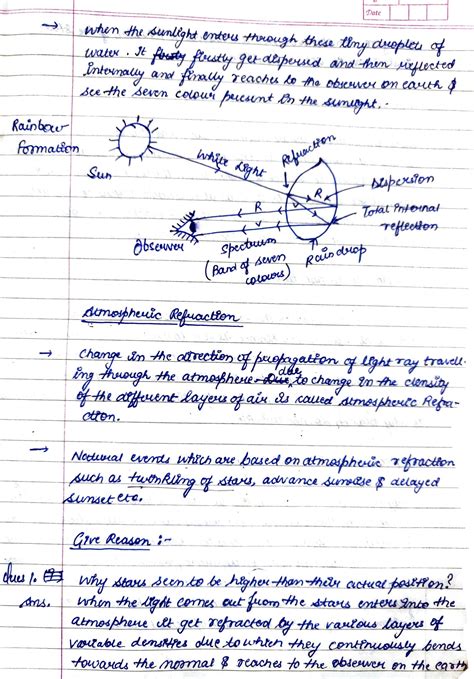 Date
→ When the sunlight enters through these tiny droplets of
water. It firstly get dispersed and then reflected
internally and finally reaches to the observer on earth &
see the seven colour present in the sunlight.
Rainbow
Formation
Sun
White light
Refraction
Dispersion
Total internal
reflection
R
V
R
V
Observer
Spectrum
(Band of seven
colours)
Rain drop
Atmospheric Refraction
→ Change in the direction of propagation of light ray travell-
ing through the atmosphere due to change in the density
of the different layers of air is called atmospheric Refra-
ction.
→ Natural events which are based on atmospheric refraction
such as twinkling of stars, advance sunrise & delayed
sunset etc.
Give Reason :-
Ques 1. Why stars seen to be higher than their actual position?
Ans. When the light comes out from the stars enters into the
atmosphere it get refracted by the various layers of
variable densities due to which they continuously bends
towards the normal & reaches to the observer on the earth